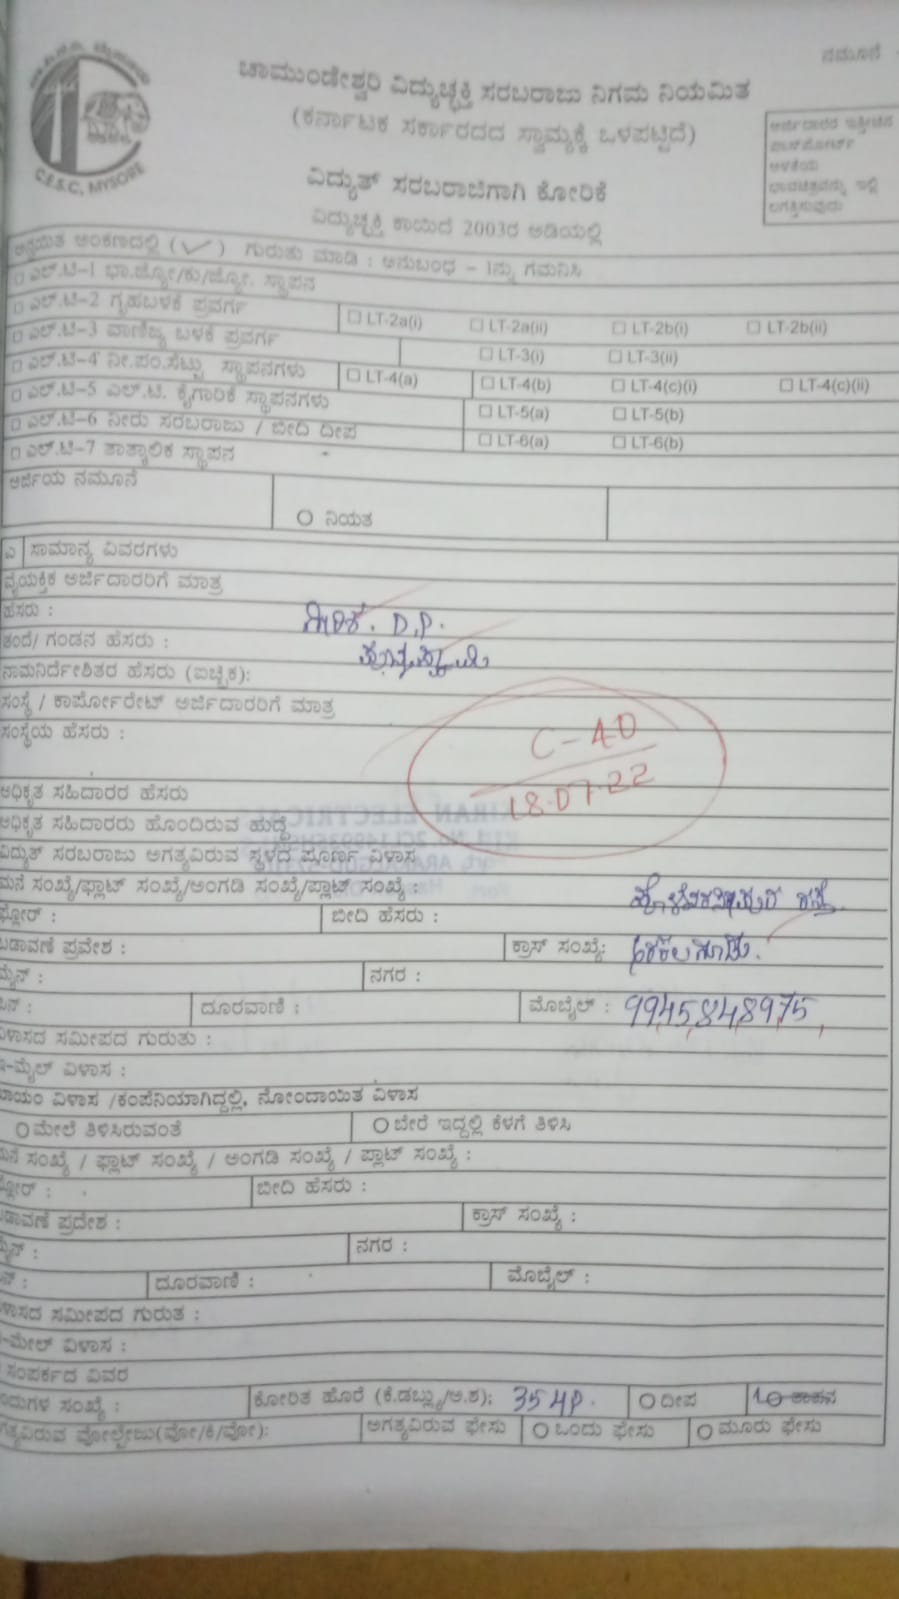 ನಮೂನೆ
C.E.S.C, MYSORE
ಚಾಮುಂಡೇಶ್ವರಿ ವಿದ್ಯುಚ್ಛಕ್ತಿ ಸರಬರಾಜು ನಿಗಮ ನಿಯಮಿತ
(ಕರ್ನಾಟಕ ಸರ್ಕಾರದದ ಸ್ವಾಮ್ಯಕ್ಕೆ ಒಳಪಟ್ಟಿದೆ)
ಅರ್ಜಿದಾರರ ಇತ್ತೀಚಿನ
ಪಾಸ್‌ಪೋರ್ಟ್
ಅಳತೆಯ
ಭಾವಚಿತ್ರವನ್ನು ಇಲ್ಲಿ
ಲಗತ್ತಿಸುವುದು
ವಿದ್ಯುತ್ ಸರಬರಾಜಿಗಾಗಿ ಕೋರಿಕೆ
ವಿದ್ಯುಚ್ಛಕ್ತಿ ಕಾಯಿದೆ 2003ರ ಅಡಿಯಲ್ಲಿ
ಅನ್ವಯಿತ ಅಂಕಣದಲ್ಲಿ (✓) ಗುರುತು ಮಾಡಿ : ಅನುಬಂಧ – 1ನ್ನು ಗಮನಿಸಿ
□ ಎಲ್.ಟಿ–1 ಭಾ.ಜ್ಯೋ/ಕು/ಜ್ಯೋ. ಸ್ಥಾಪನ
□ ಎಲ್.ಟಿ–2 ಗೃಹಬಳಕೆ ಪ್ರವರ್ಗ □ LT-2a(i) □ LT-2a(ii) □ LT-2b(i) □ LT-2b(ii)
□ ಎಲ್.ಟಿ–3 ವಾಣಿಜ್ಯ ಬಳಕೆ ಪ್ರವರ್ಗ □ LT-3(i) □ LT-3(ii)
□ ಎಲ್.ಟಿ–4 ನೀ.ಪಂ.ಸೆಟ್ಟು ಸ್ಥಾಪನಗಳು □ LT-4(a) □ LT-4(b) □ LT-4(c)(i) □ LT-4(c)(ii)
□ ಎಲ್.ಟಿ–5 ಎಲ್.ಟಿ. ಕೈಗಾರಿಕೆ ಸ್ಥಾಪನಗಳು □ LT-5(a) □ LT-5(b)
□ ಎಲ್.ಟಿ–6 ನೀರು ಸರಬರಾಜು / ಬೀದಿ ದೀಪ □ LT-6(a) □ LT-6(b)
□ ಎಲ್.ಟಿ–7 ತಾತ್ಕಾಲಿಕ ಸ್ಥಾಪನ
ಅರ್ಜಿಯ ನಮೂನೆ
○ ನಿಯತ
ಎ ಸಾಮಾನ್ಯ ವಿವರಗಳು
ವೈಯಕ್ತಿಕ ಅರ್ಜಿದಾರರಿಗೆ ಮಾತ್ರ
ಹೆಸರು : D.P.
ತಂದೆ/ ಗಂಡನ ಹೆಸರು :
ನಾಮನಿರ್ದೇಶಿತರ ಹೆಸರು (ಐಚ್ಛಿಕ):
ಸಂಸ್ಥೆ / ಕಾರ್ಪೋರೇಟ್ ಅರ್ಜಿದಾರರಿಗೆ ಮಾತ್ರ
ಸಂಸ್ಥೆಯ ಹೆಸರು :
C-40
18.07.22
ಅಧಿಕೃತ ಸಹಿದಾರರ ಹೆಸರು
ಅಧಿಕೃತ ಸಹಿದಾರರು ಹೊಂದಿರುವ ಹುದ್ದೆ
ವಿದ್ಯುತ್ ಸರಬರಾಜು ಅಗತ್ಯವಿರುವ ಸ್ಥಳದ ಪೂರ್ಣ ವಿಳಾಸ
ಮನೆ ಸಂಖ್ಯೆ/ಫ್ಲಾಟ್ ಸಂಖ್ಯೆ/ಅಂಗಡಿ ಸಂಖ್ಯೆ/ಪ್ಲಾಟ್ ಸಂಖ್ಯೆ :
ಫ್ಲೋರ್ : ಬೀದಿ ಹೆಸರು :
ಬಡಾವಣೆ ಪ್ರವೇಶ : ಕ್ರಾಸ್ ಸಂಖ್ಯೆ: ಅರಕಲಗೂಡು.
ಮೈನ್ : ನಗರ :
ಪಿನ್ : ದೂರವಾಣಿ : ಮೊಬೈಲ್ : 9945848975
ವಿಳಾಸದ ಸಮೀಪದ ಗುರುತು :
ಇ–ಮೈಲ್ ವಿಳಾಸ :
ಖಾಯಂ ವಿಳಾಸ /ಕಂಪೆನಿಯಾಗಿದ್ದಲ್ಲಿ, ನೋಂದಾಯಿತ ವಿಳಾಸ
○ ಮೇಲೆ ತಿಳಿಸಿರುವಂತೆ ○ ಬೇರೆ ಇದ್ದಲ್ಲಿ ಕೆಳಗೆ ತಿಳಿಸಿ
ಮನೆ ಸಂಖ್ಯೆ / ಫ್ಲಾಟ್ ಸಂಖ್ಯೆ / ಅಂಗಡಿ ಸಂಖ್ಯೆ / ಪ್ಲಾಟ್ ಸಂಖ್ಯೆ :
ಫ್ಲೋರ್ : ಬೀದಿ ಹೆಸರು :
ಬಡಾವಣೆ ಪ್ರದೇಶ : ಕ್ರಾಸ್ ಸಂಖ್ಯೆ :
ಮೈನ್ : ನಗರ :
ಪಿನ್ : ದೂರವಾಣಿ : ಮೊಬೈಲ್ :
ವಿಳಾಸದ ಸಮೀಪದ ಗುರುತ :
ಇ–ಮೇಲ್ ವಿಳಾಸ :
ಸಂಪರ್ಕದ ವಿವರ
ಸಂಖ್ಯೆ : ಕೋರಿತ ಹೊರೆ (ಕೆ.ಡಬ್ಲ್ಯು/ಅ.ಶ): 35 HP. ○ ದೀಪ
ಅಗತ್ಯವಿರುವ ವೋಲ್ಟೇಜು(ವೋ/ಕಿ/ವೋ): ಅಗತ್ಯವಿರುವ ಫೇಸು ○ ಒಂದು ಫೇಸು ○ ಮೂರು ಫೇಸು